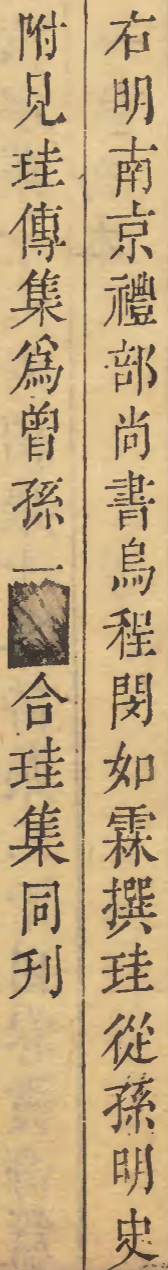 右明南京禮部尚書烏程閔如霖撰珪從孫明史
附見珪傳集為曾孫一合珪集同刋